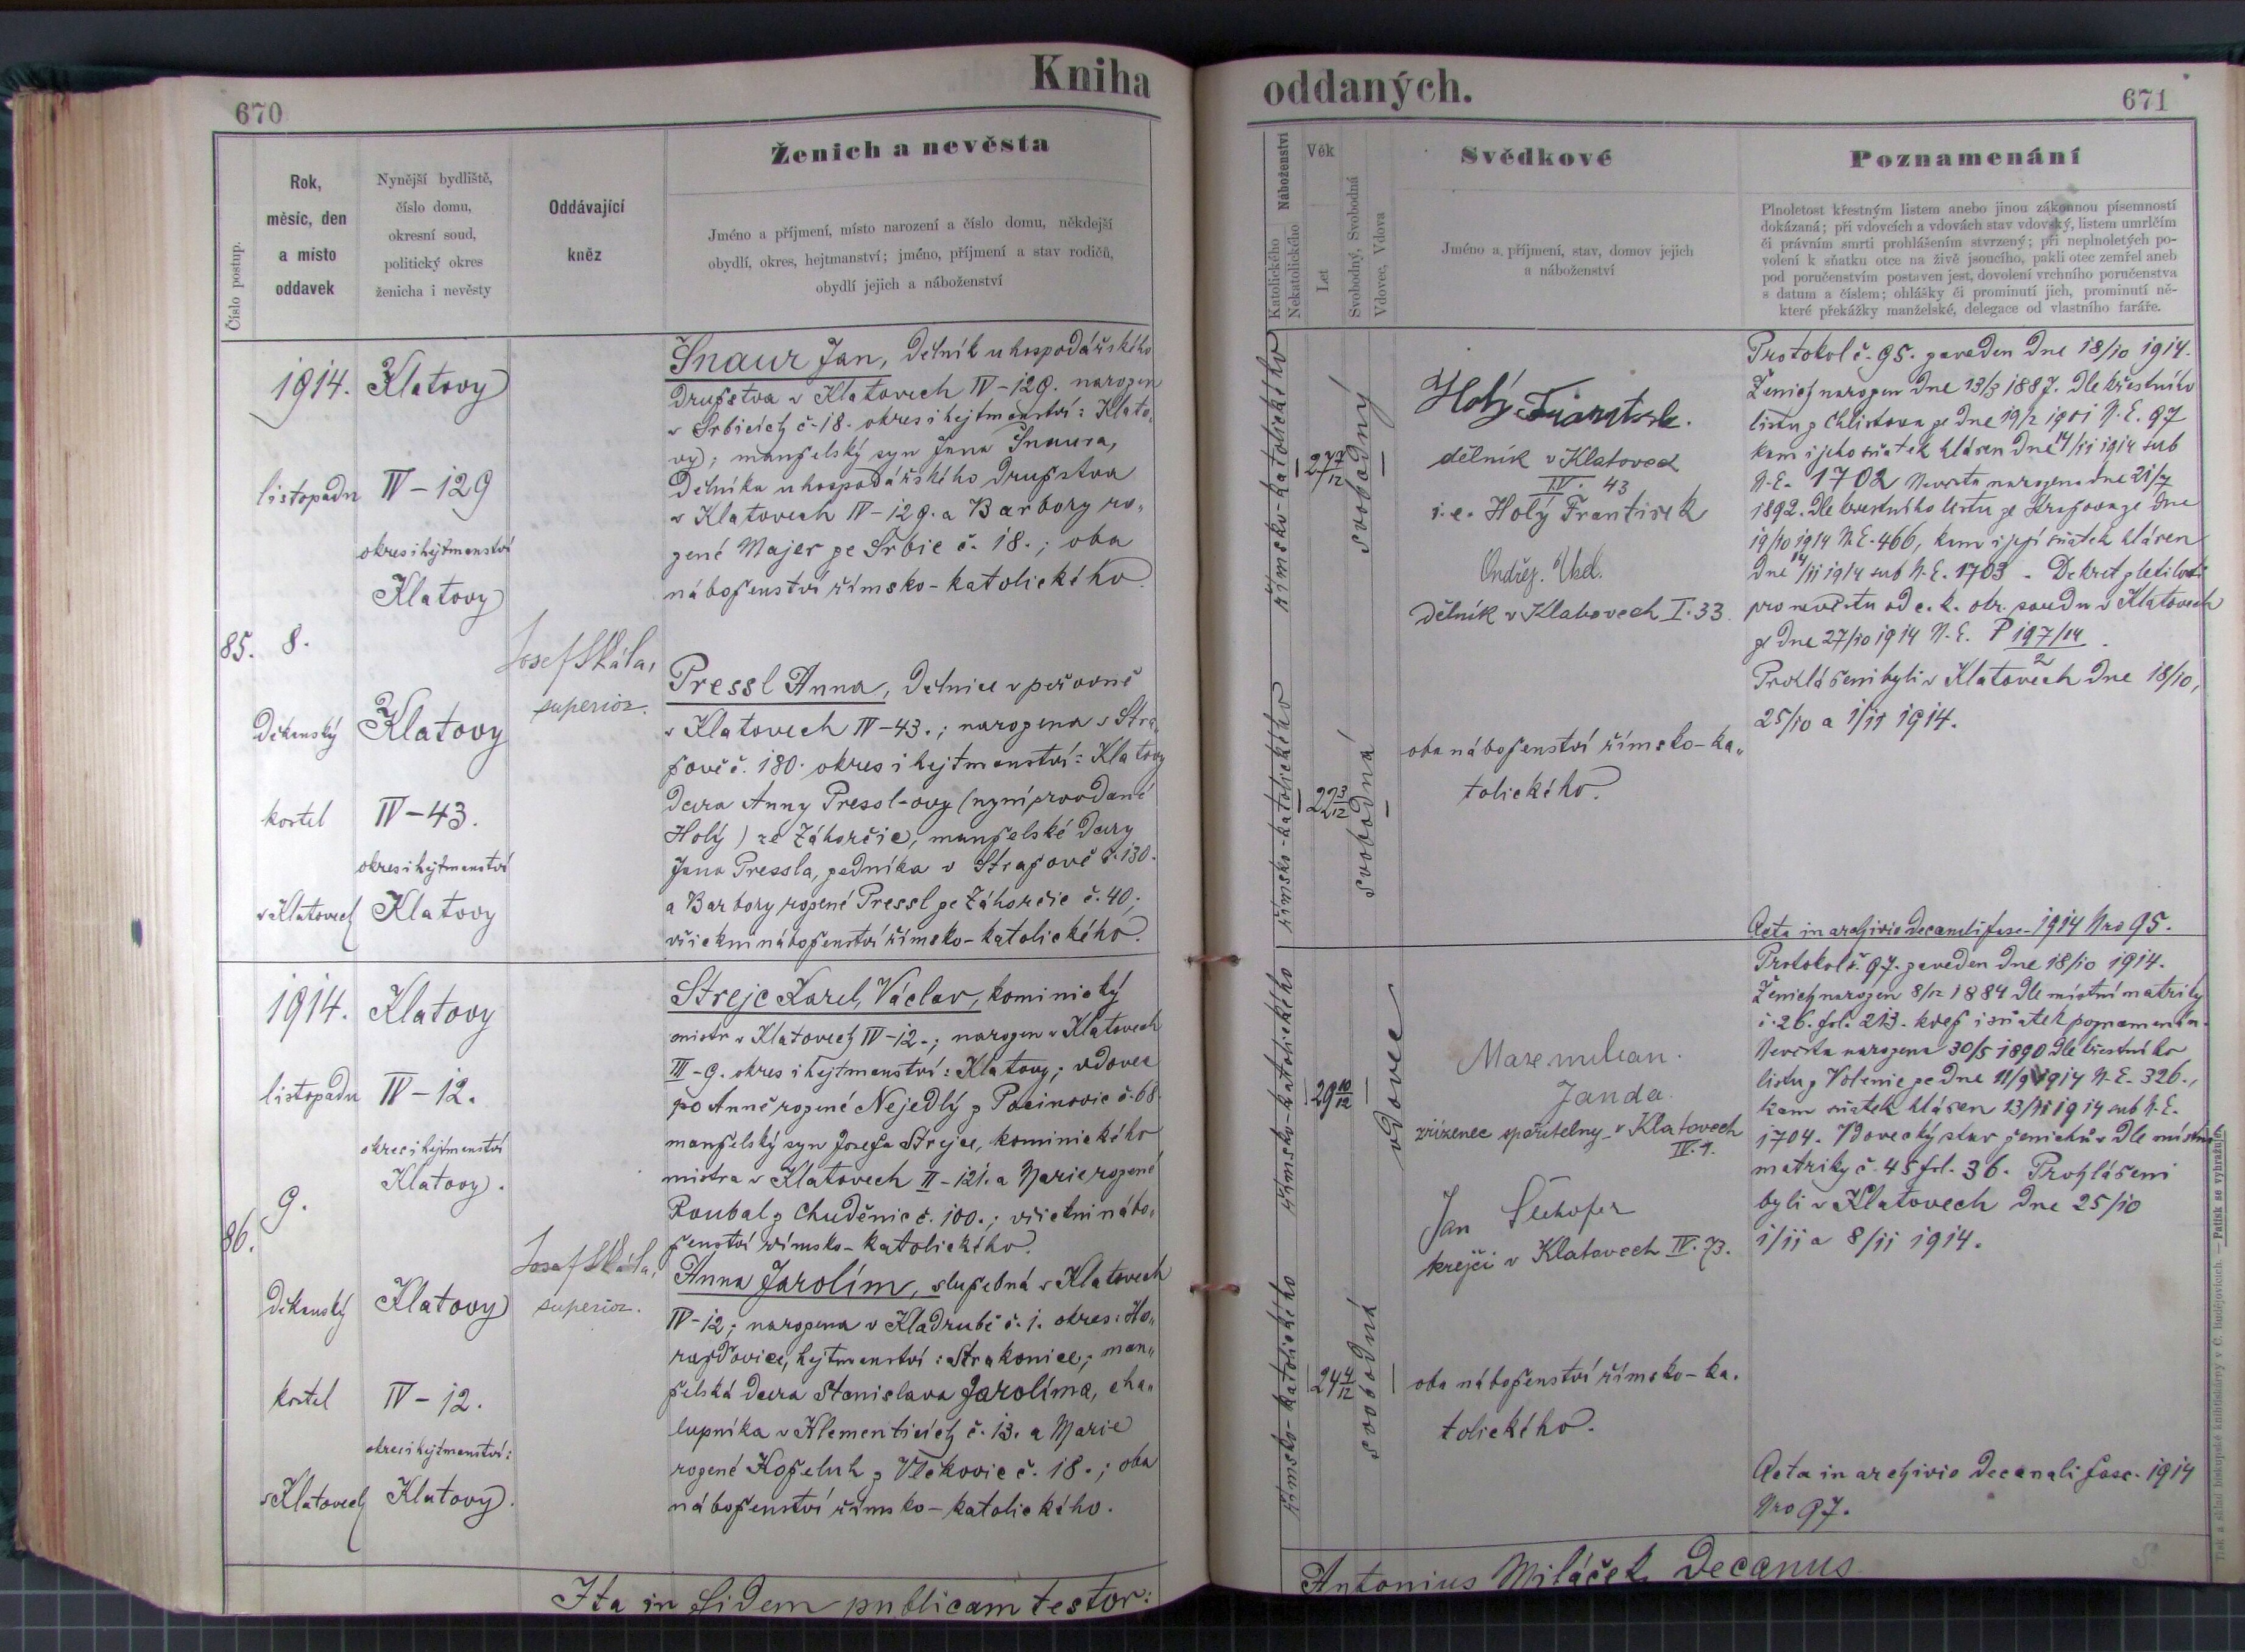 Kniha
670
Číslo postup.
Rok,
měsíc, den
a místo
oddavek
Nynější bydliště,
číslo domu,
okresní soud,
politický okres
ženicha i nevěsty
Oddávající
kněz
Ženich a nevěsta
Jméno a příjmení, místo narození a číslo domu, někdejší
obydlí, okres, hejtmanství; jméno, příjmení a stav rodičů,
obydlí jejich a náboženství
85.
1914.
listopadu
8.
Děkanský
kostel
v Klatovech
Klatovy
IV-129
okres i hejtmanství
Klatovy
Klatovy
IV-43.
okres i hejtmanství
Klatovy
Josef Skála,
superior.
Šnaur Jan, dělník u hospodářského
družstva v Klatovech IV-129. narozen
v Srbicích č. 18. okres i hejtmanství: Klato„
vy; manželský syn Jana Šnaura,
dělníka u hospodářského družstva
v Klatovech IV-129. a Barbory ro„
zené Majer ze Srbic č. 18.; oba
náboženství římsko-katolického.
Pressl Anna, dělnice v peřovně
v Klatovech IV-43.; narozena v Stra„
žově č. 180. okres i hejtmanství: Klatovy
dcera Anny Pressl-ovy (nyní provdané
Holý) ze Záhorčic, manželské dcery
Jana Pressla, zedníka v Stražově č. 130.
a Barbory rozené Pressl ze Záhorčic č. 40;
všickni náboženství římsko-katolického.
86.
1914.
listopadu
9.
Děkanský
kostel
v Klatovech
Klatovy
IV-12.
okres i hejtmanství
Klatovy.
Klatovy
IV-12.
okres i hejtmanství:
Klatovy.
Josef Skála,
superior.
Strejc Karel, Václav, kominický
mistr v Klatovech IV-12.; narozen v Klatovech
III-9. okres i hejtmanství: Klatovy; vdovec
po Anně rozené Nejedlý z Pocinovic č. 68.
manželský syn Josefa Strejce, kominického
mistra v Klatovech II-121. a Marie rozené
Roubal z Chuděnic č. 100.; všickni nábo„
ženství římsko-katolického.
Anna Jarolím, služebná v Klatovech
IV-12; narozena v Kladrubě č. 1. okres: Ho„
ražďovice, hejtmanství: Strakonice; man„
želská dcera Stanislava Jarolíma, cha„
lupníka v Hlementicích č. 13. a Marie
rozené Koželuh z Vlckovic č. 18.; oba
náboženství římsko-katolického.
Ita in fidem publicam testor:
oddaných.
671
Náboženství
Katolického
Nekatolického
Věk
Let
Svobodný, Svobodná
Vdovec, Vdova
Svědkové
Jméno a příjmení, stav, domov jejich
a náboženství
Poznamenání
Plnoletost křestným listem anebo jinou zákonnou písemností
dokázaná; při vdovcích a vdovách stav vdovský, listem umrlčím
či právním smrti prohlášením stvrzený; při neplnoletých po-
volení k sňatku otce na živě jsoucího, pakli otec zemřel aneb
pod poručenstvím postaven jest, dovolení vrchního poručenstva
s datum a číslem; ohlášky či prominutí jich, prominutí ně-
které překážky manželské, delegace od vlastního faráře.
římsko-katolického
27 7/12
svobodný
římsko-katolického
22 3/12
svobodná
Holý František.
dělník v Klatovech
IV. 43
i.e. Holý František
Ondřej
dělník v Klatovech I. 33.
oba náboženství římsko-ka„
tolického.
Protokol č. 95. zaveden dne 18/10 1914.
Ženich narozen dne 13/3 1887. dle křestního
listu z Chlistova ze dne 19/2 1901 N.E. 97
kam i jeho sňatek hlášen dne 14/11 1914 sub
N.E. 1702 Nevěsta narozena dne 21/7
1892. dle křestního listu ze Stražova ze dne
19/10 1914 N.E. 466, kam i její sňatek hlášen
dne 14/11 1914 sub N.E. 1703. Dekret zletilosti
pro nevěstu od c. k. okr. soudu v Klatovech
ze dne 27/10 1914 N.E. P 197/14
2
Prohlášeni byli v Klatovech dne 18/10,
25/10 a 1/11 1914.
Acta in archivio decanali fasc. 1914 Nro 95.
římsko-katolického
29 10/12
vdovec
římsko-katolického
24 4/12
svobodná
Maxmilian.
Janda.
zřízenec spořitelny v Klatovech
IV. 4.
Jan
krejčí v Klatovech IV. 73.
oba náboženství římsko-ka.
tolického.
Protokol č. 97. zaveden dne 18/10 1914.
Ženich narozen 8/12 1884 dle místní matriky
č. 26. fol. 213. kdež i sňatek poznamenán.
Nevěsta narozena 30/5 1890 dle křestního
listu z Volenic ze dne 11/9 1914 N.E. 326.,
kam sňatek hlášen 13/11 1914 sub N.E.
1704. Vdovecký stav ženichův dle místní
matriky č. 45 fol. 36. Prohlášeni
byli v Klatovech dne 25/10
1/11 a 8/11 1914.
Acta in archivio decanali fasc. 1914
Nro 97.
Antonius Miláček Decanus
Tisk a sklad biskupské knihtiskárny v Č. Budějovicích. — Patisk se vyhražuje.